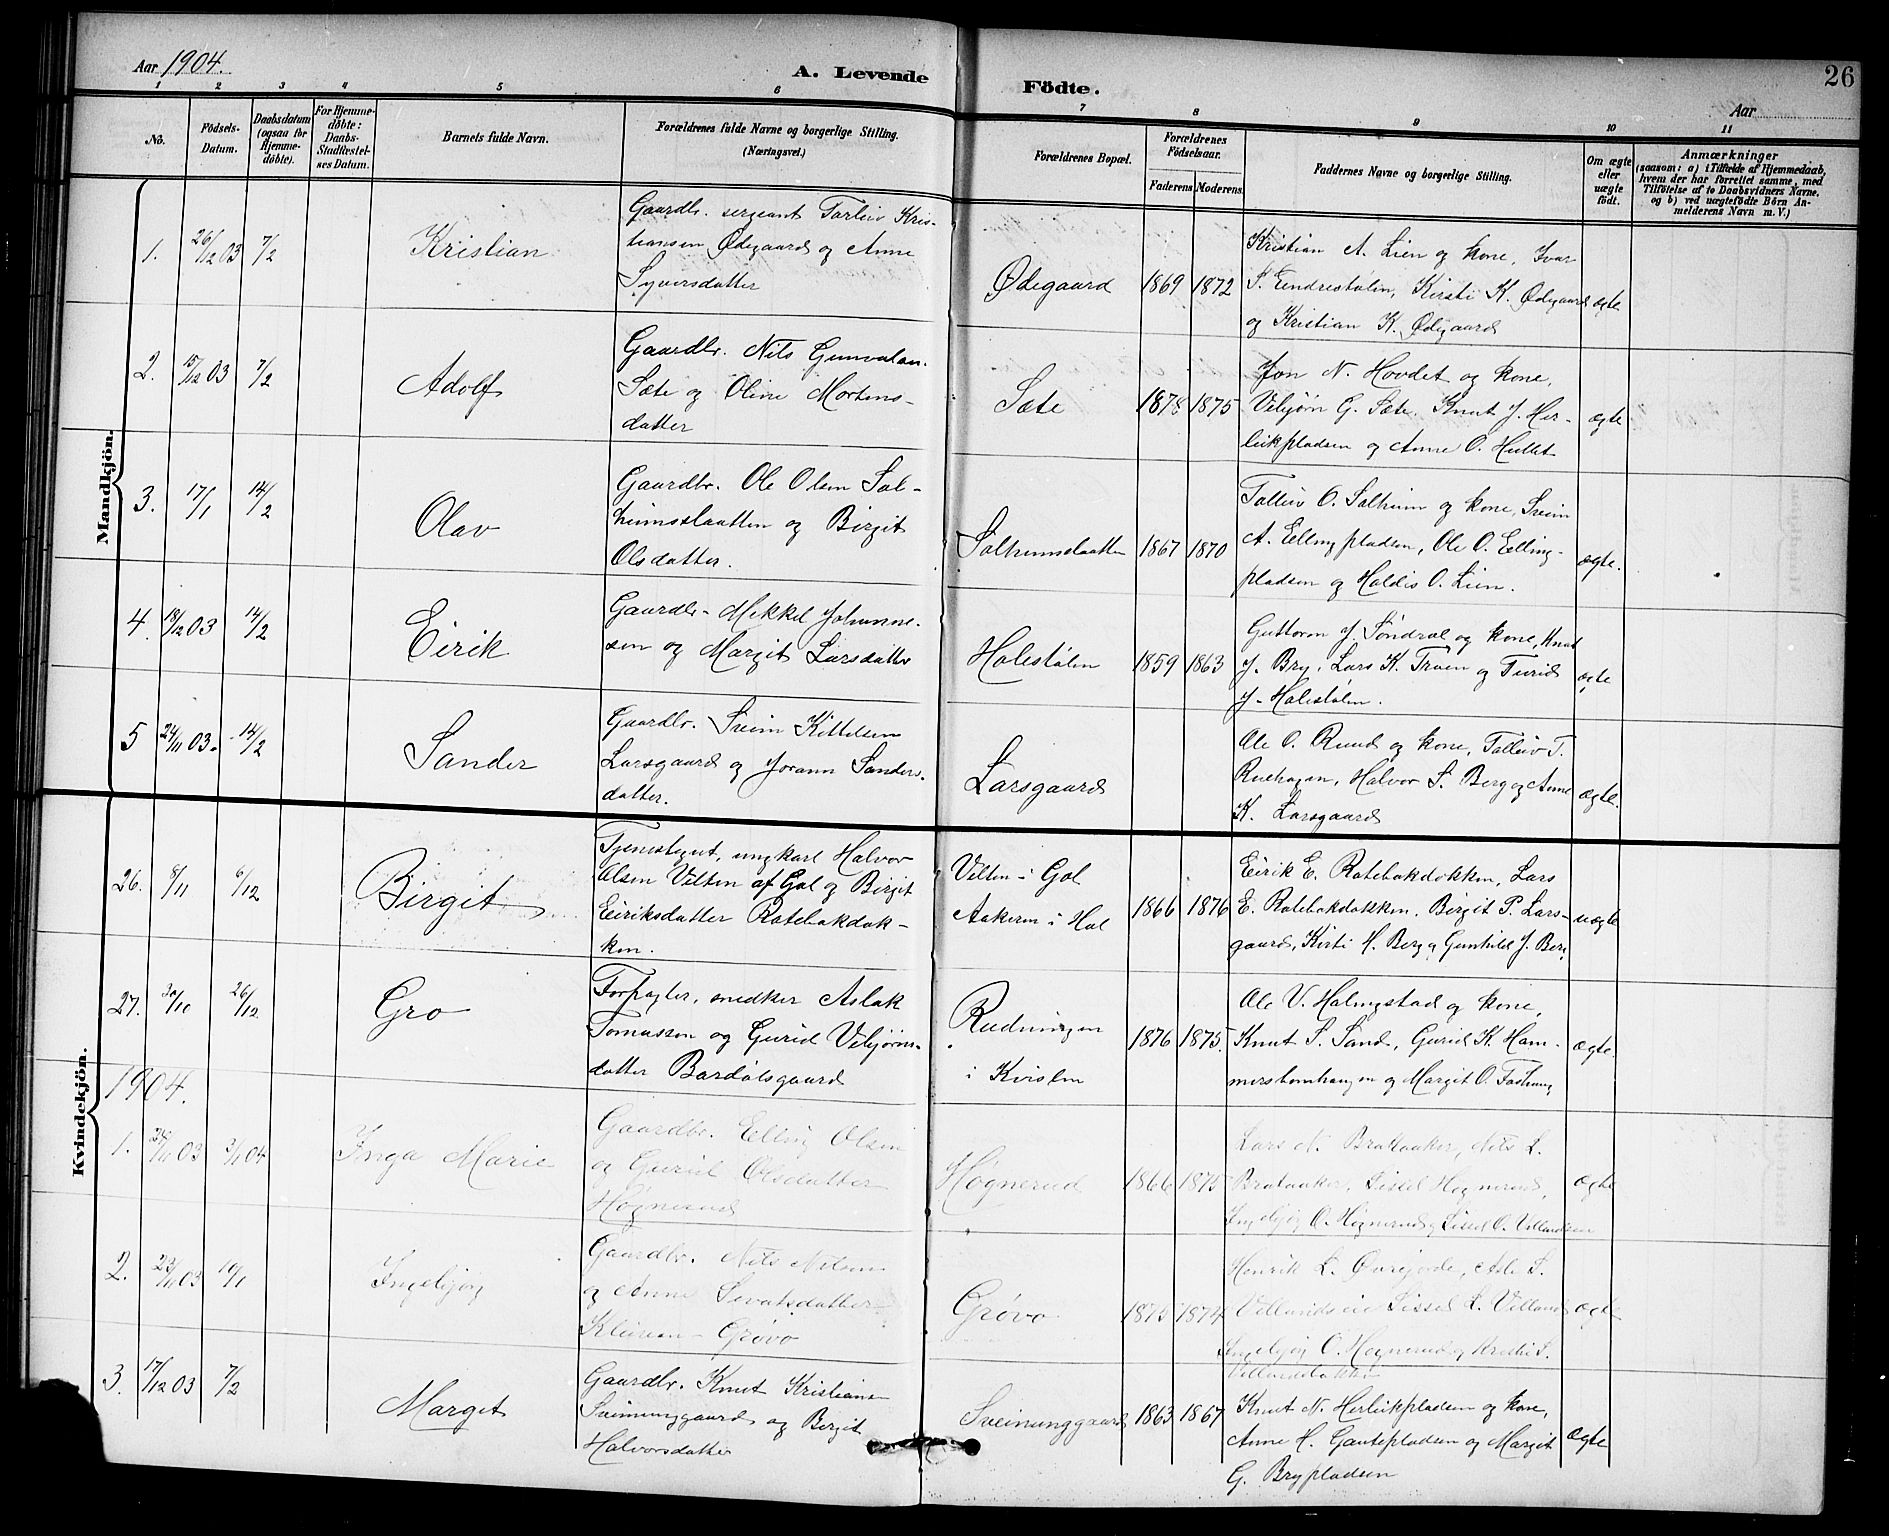 Aar 1904.
A. Levende Födte.
26
Aar
1 2 3 4 5 6 7 8 9 10 11
No.
Födsels-Datum.
Daabsdatum (ogsaa for Hjemme-döbte).
For Hjemme-döbte: Daabs-Stadfæstel-ses Datum.
Barnets fulde Navn.
Forældrenes fulde Navne og borgerlige Stilling. (Næringsvei.)
Forældrenes Bopæl.
Forældrenes Födselsaar.
Faderens Moderens.
Faddernes Navne og borgerlige Stilling.
Om ægte eller uægte födt.
Anmærkninger
(saasom: a) i Tilfælde af Hjemmedaab,
hvem der har forrettet samme, med
Tilföielse af to Daabsvidners Navne,
og b) ved uægtefödte Börn An-
melderens Navn m. V.)
Mandkjön.
1. 26/12 03 7/2 Kristian
Gaardbr. sergeant Tarleiv Kris-
tiansen Ødegaard og Anne
Syversdatter
Ødegaard 1869 1872
Kristian A. Lien og kone, Ivar
S. Eendrestølen, Kirsti K. Ødegaard
og Kristian K. Ødegaard
ægte
2. 15/12 03 7/2 Adolf
Gaardbr. Nils
Sæte og Oline Mortens-
datter
Sæte 1878 1875
Jon N. Hovdet og kone,
Vebjørn G. Sæte. Knut J. Her-
leikpladsen og Anne O. Hullet
ægte
3. 17/1 14/2 Olav
Gaardbr. Ole Olsen Sal-
heimsslaatten og Birgit
Olsdatter.
Salheimslaatten 1867 1870
Talleiv O. Salheim og kone, Svein
A. Ellingpladsen, Ole O. Elling-
pladsen og Haldis O. Lien.
ægte.
4. 18/12 03 14/2 Eirik
Gaardbr. Mekkel Johanne-
sen og Margit Larsdatter
Holestølen 1859 1863
Guttorm J. Søndral og kone, Knut
J. Bry, Lars K. Træen og Turid
J. Holestølen.
ægte
5 24/11 03. 14/2 Sander
Gaardbr. Svein Kittelsen
Larsgaard og Jorann Sanders-
datter.
Larsgaard
Ole O. Ruud og kone, Talleiv T.
Ruehagen, Halvor S. Berg og Anne
K. Larsgaard
ægte.
Kvindekjön.
26. 8/11 6/12 Birgit
Tjenestegut, ungkarl Halvor
Olsen Vilten af Gol og Birgit
Eiriksdatter Rotebakdok-
ken.
Vilten i Gol
Aakeren i Hol
1866 1876
Eirik E. Rotebakdokken, Lars
E. Rotebakdokken. Birgit P. Lars-
gaard, Kirsti H. Berg og Gunhild J. Berg
uægte
27. 30/10 26/12 Gro
Forpagter, snedker Aslak
Tomassen og Gurid Vebjørns-
datter Bardølsgaard
Rudningen
i Kvislen
1876 1875.
Ole V. Holmgstad og kone,
Knut S. Sand, Gurid K. Ham-
mersbønhaugen og Margit O.
ægte.
1904.
1. /11 03 3/1 04 Inga Marie
Gaardbr. Elling Olsen
og Gurid Olsdatter
Høgnerud
Høgnerud 1866 1875
Lars N. Brataaker, Nils L.
Brataaker, Sissel Høgnerud,
Ingebjørg O. Høgnerud og Sissel O.
ægte
2. 23/11 03 10/1 Ingebjørg
Gaardbr. Nils Nilsen
og Anne Sevatsdatter
Kleiven-Grøvo
Grøvo 1875 1874
Henrik L. Øvrejorde, Asle S.
Villand Sissel L. Villand
Ingebjørg O. Høgnerud og Kristi S.
ægte
3. 17/12 03 7/2 Margit
Gaardbr. Knut Kristians
Sveinunggaard og Birgit
Halvorsdatter
Sveinunggaard 1863 1867
Knut N. Herleikpladsen og kone,
Anne H. Gautepladsen og Margit
G. Brypladsen
ægte